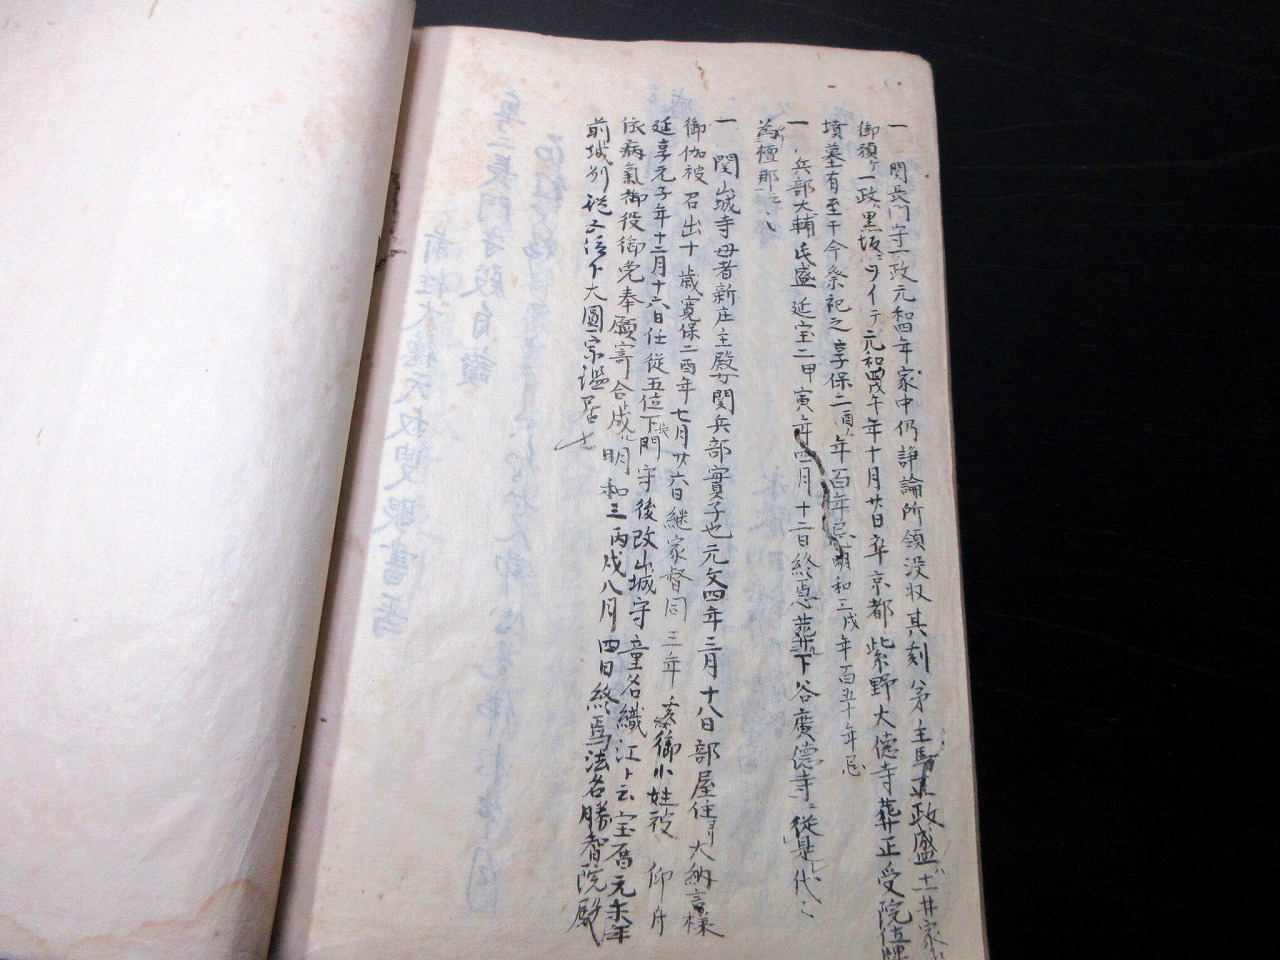 一 関長門守一政元和四年家中仍諍論所領没収其刻弟主馬正政盛土井家
御預ケ一政黒坂ニヲイテ元和四戊午年十月廿日卒京都紫野大徳寺葬正受院位牌
墳墓有至干今祭祀之享保二酉年百年忌明和三戌年百五十年忌
一 兵部大輔氏盛延宝二甲寅年四月十二日終焉葬下谷廣徳寺ニ従是代ニ
為檀那
一 関山城守母者新庄主殿女関兵部實子也元文四年三月十八日部屋住ヨリ大納言様
御伽被召出十歳寛保二酉年七月廿六日継家督同三年御小姓被仰付
延享元子年十二月十六日任従五位下長門守後改山城守童名織江ト云宝暦元未年
依病氣御役御免奉願寄合成明和三丙戌八月四日終焉法名勝智院殿
前城別従五位下大圓宗鑑居士